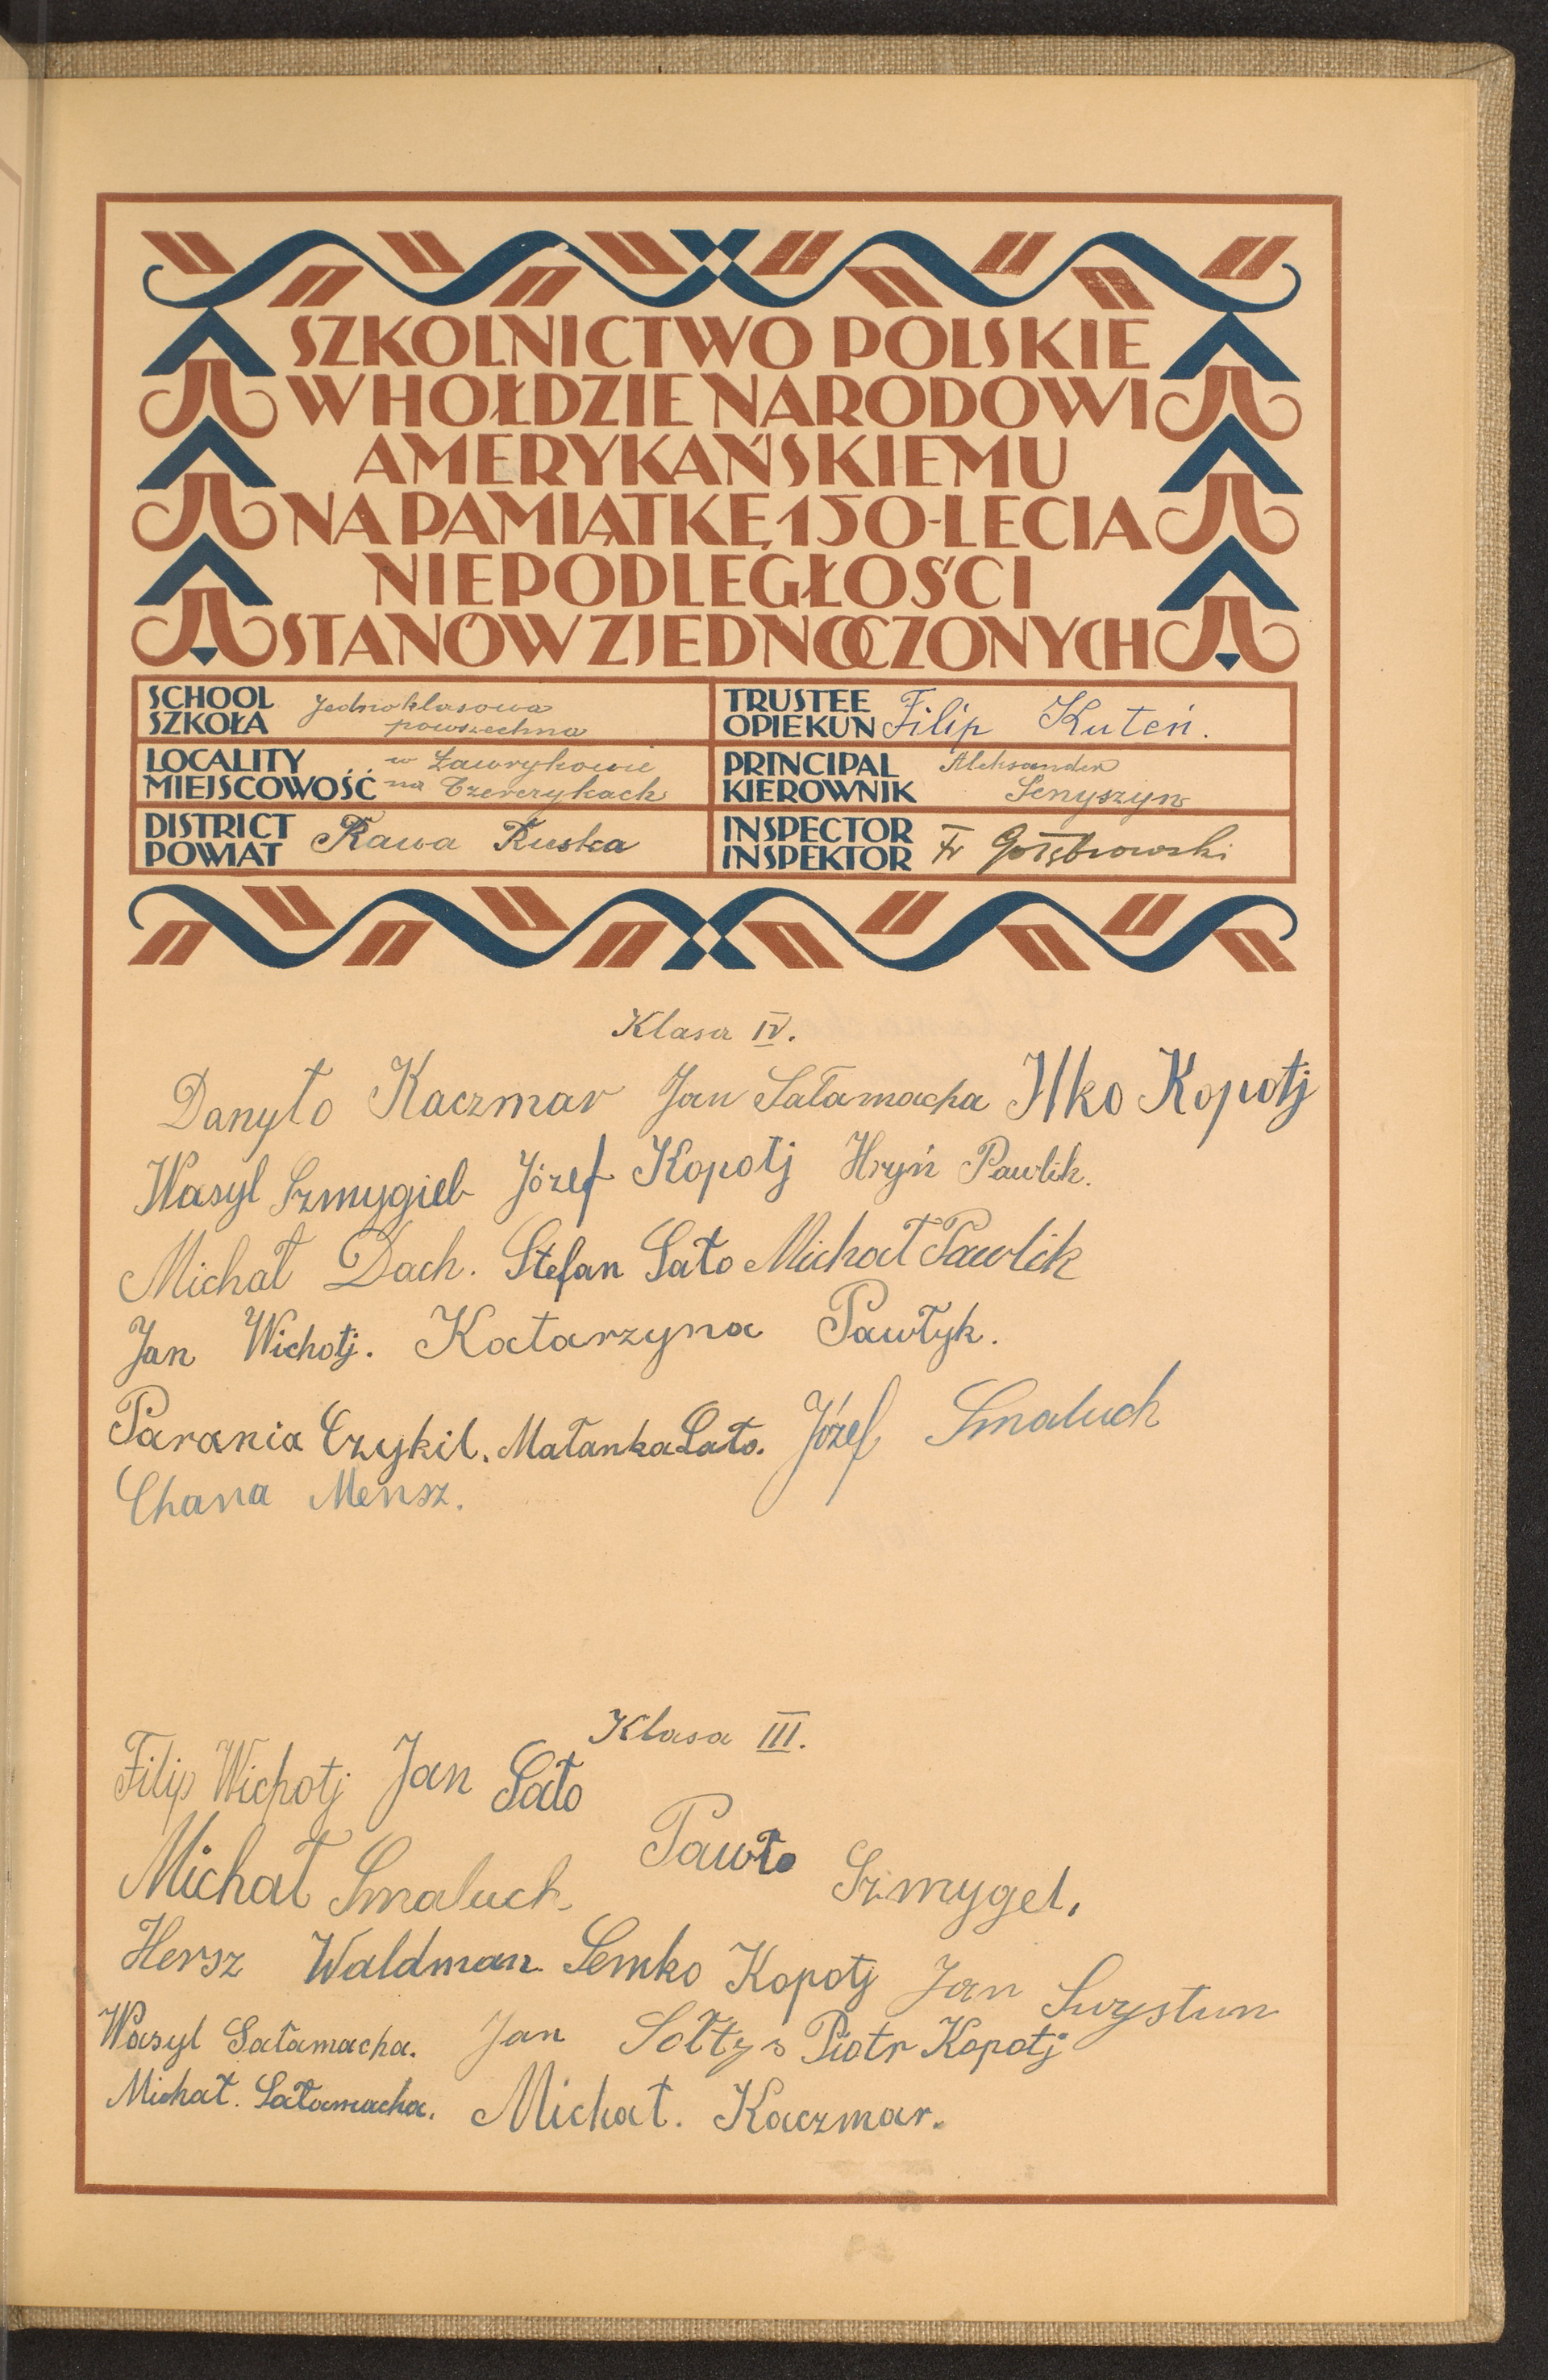 SZKOLNICTWO POLSKIE
W HOŁDZIE NARODOWI
AMERYKAŃSKIEMU
NA PAMIĄTKĘ 150-LECIA
NIEPODLEGŁOŚCI
STANÓW ZJEDNOCZONYCH
SCHOOL
SZKOŁA
Jednoklasowa
powszechna
TRUSTEE
OPIEKUN
Filip Kuteń.
LOCALITY
MIEJSCOWOŚĆ
w Ławrykowie
na
PRINCIPAL
KIEROWNIK
Aleksander
Senyszyn
DISTRICT
POWIAT
Rawa Ruska
INSPECTOR
INSPEKTOR
Fr Gołębrowski
Klasa IV.
Danyło Kaczmar Jan Sałamacha Ilko Kopotj
Wasyl Szmygiel Józef Kopotj Hryń Pawlik.
Michał Dach. Stefan Sało Michał Pawlik
Jan Wichotj. Katarzyna Pawłyk.
Parania Czykil. Małanka Sało. Józef Smaluch
Chana Mensz.
Klasa III.
Filip Wichotj Jan Sało
Michał Smaluch Pawło Szmygel.
Hersz Waldman. Semko Kopotj Jan Swystun
Wasyl Sałamacha. Jan Sołtys Piotr Kopotj
Michał. Sałamacha. Michał. Kaczmar.